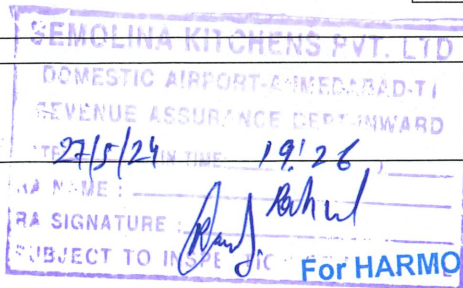 SEMOLINA KITCHENS PVT. LTD
DOMESTIC AIRPORT-AHMEDABAD-T1
REVENUE ASSURANCE DEPT INWARD
27/5/24 IN TIME 19:26
RA NAME :
RA SIGNATURE : Rahul
SUBJECT TO INSPE
For HARMO